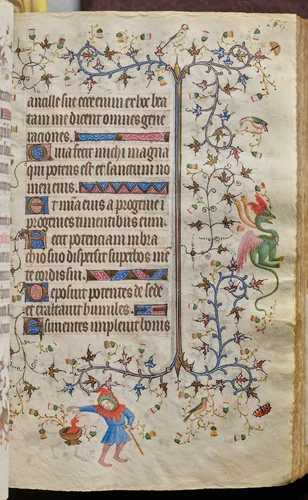 ancille sue ecce enim ex hoc bea
tam me dicent omnes gene
raciones.
Quia fecit michi magna
qui potens est et sanctum no
men eius.
Et mia eius a progenie i
progenies timentibus eum
Fecit potenciam in bra
chio suo dispersit supbos me
te cordis sui.
Deposuit potentes de sede
et exaltauit humiles.
Esurientes impleuit bonis